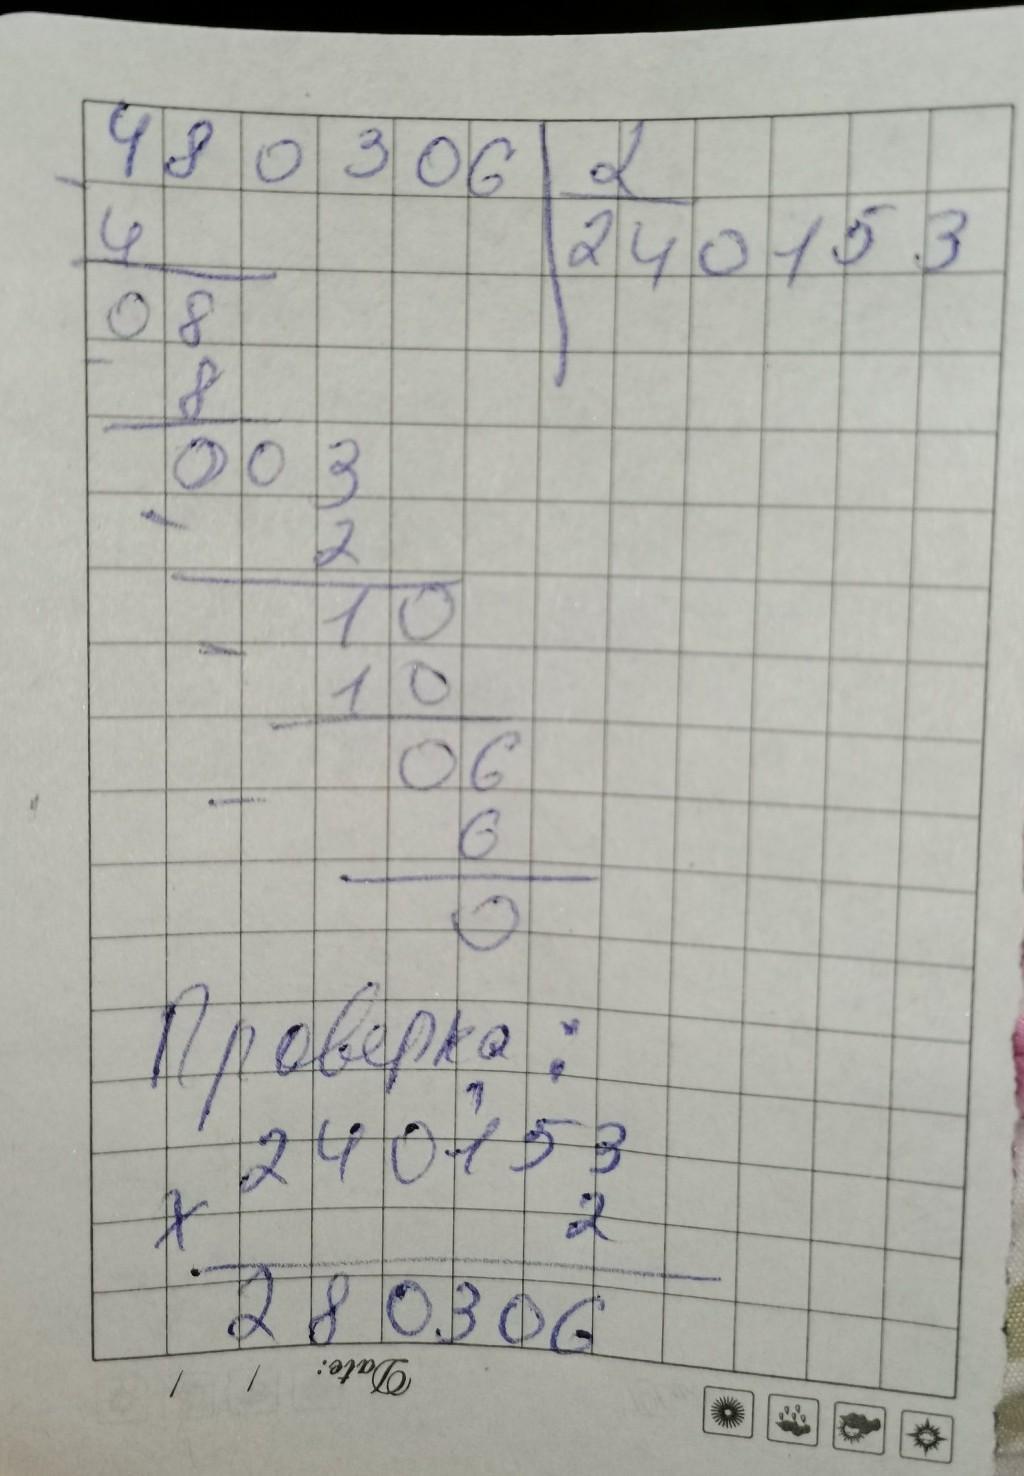 480306 2
4 240153
08
8
003
2
10
10
06
6
0
Проверка:
1
240153
x 2
280306
Date: / /